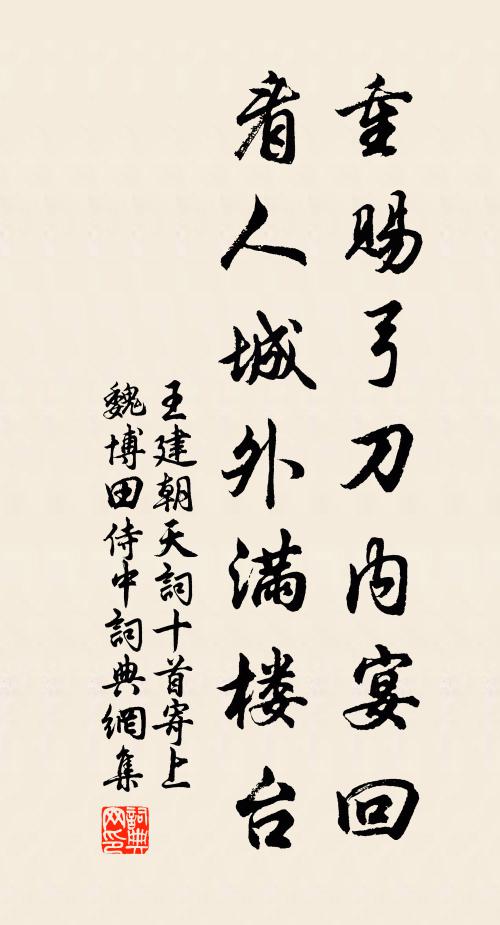 重赐弓刀内宴回
看人城外满楼台
王建朝天詞十首寄上
魏博田侍中詞典網集
詞典網印